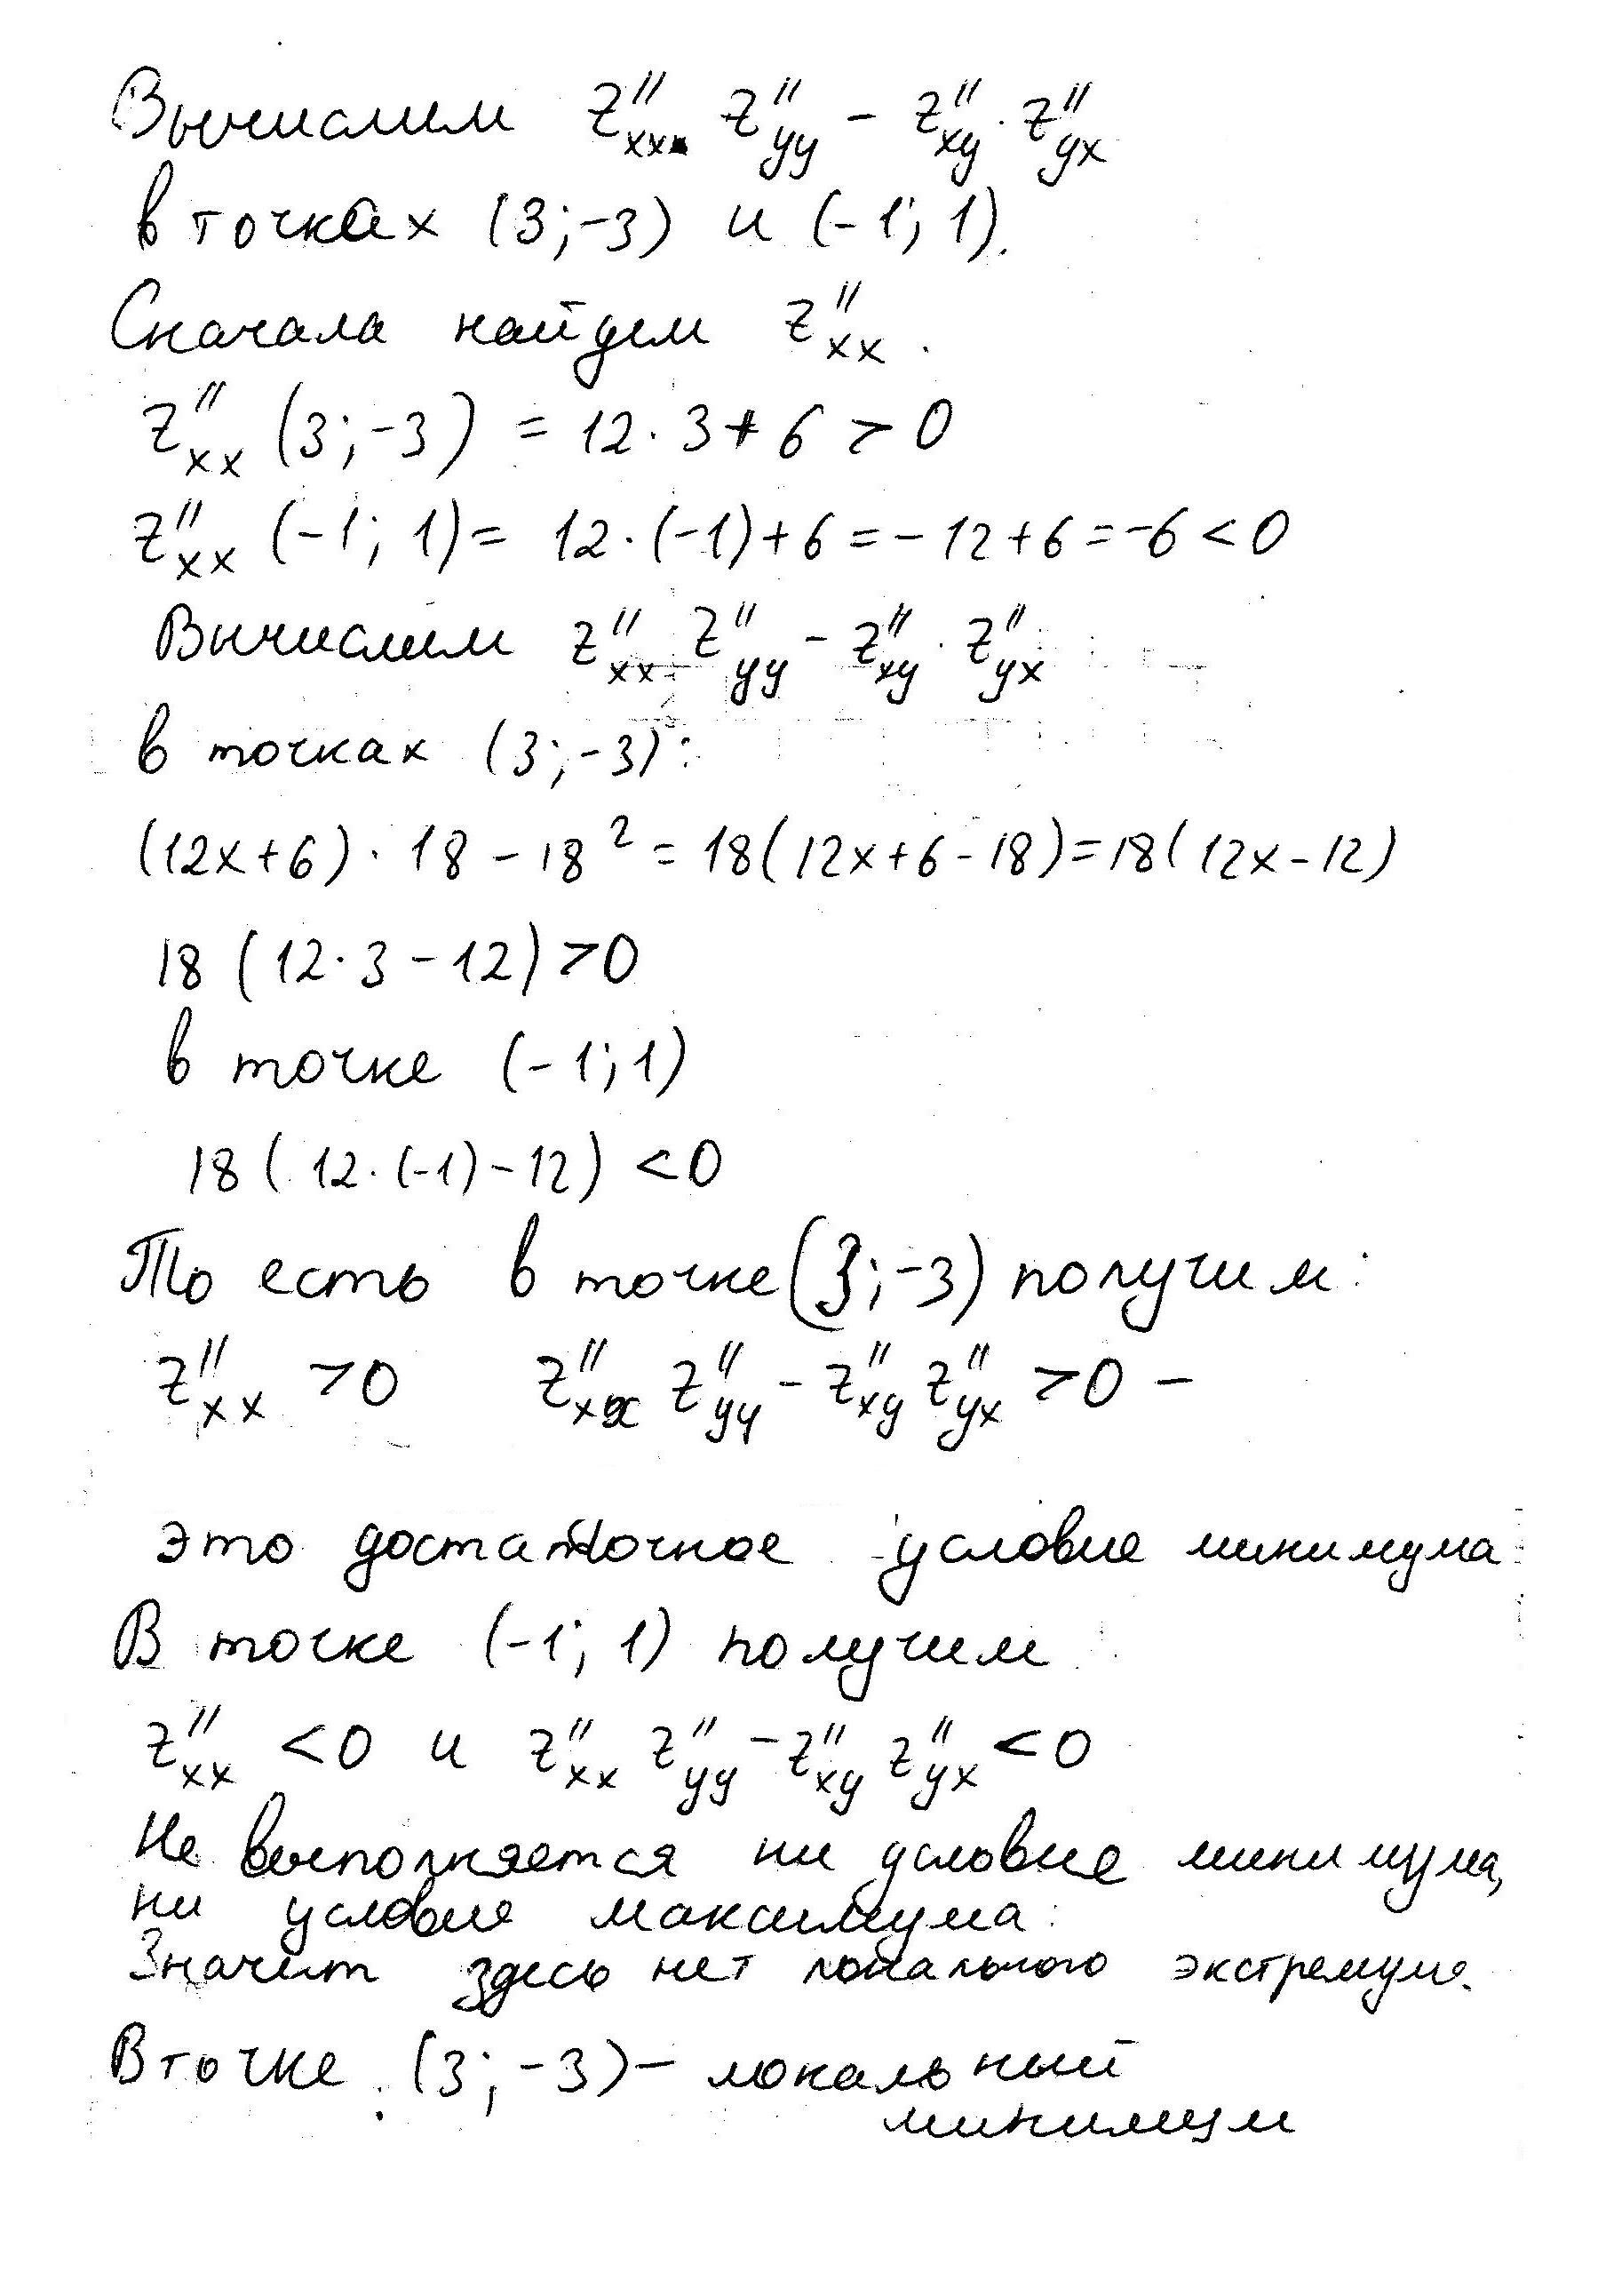 Вычислим z''xx · z''yy − z''xy · z''yx
в точках (3; −3) и (−1; 1).
Сначала найдем z''xx.
z''xx (3; −3) = 12 · 3 + 6 > 0
z''xx (−1; 1) = 12 · (−1) + 6 = −12 + 6 = −6 < 0
Вычислим z''xx z''yy − z''xy · z''yx
в точках (3; −3):
(12x + 6) · 18 − 18² = 18(12x + 6 − 18) = 18(12x − 12)
18 (12 · 3 − 12) > 0
в точке (−1; 1)
18 (12 · (−1) − 12) < 0
То есть в точке (3; −3) получим:
z''xx > 0 z''xx z''yy − z''xy z''yx > 0 −
это достаточное условие минимума
В точке (−1; 1) получим
z''xx < 0 и z''xx z''yy − z''xy z''yx < 0
Не выполняется ни условие минимума,
ни условие максимума.
Значит здесь нет локального экстремума.
В точке (3; −3) − локальный
минимум